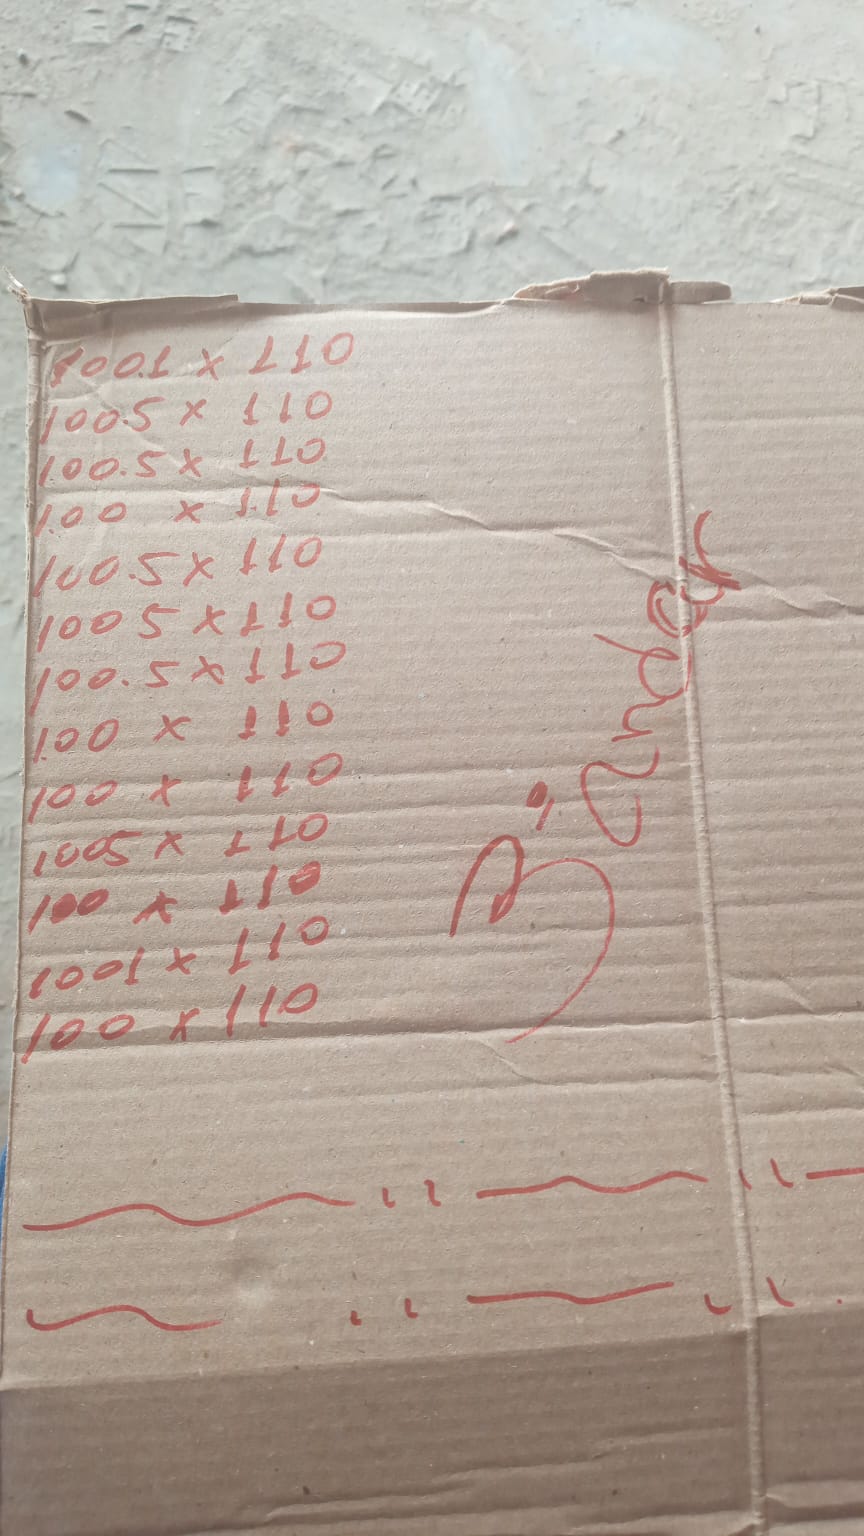 100.1 x 110
100.5 x 110
100.5 x 110
100 x 110
100.5 x 110
100 5 x 110
100.5 x 110
100 x 110
100 x 110
1005 x 110
100 x 110
1001 x 110
100 x 110